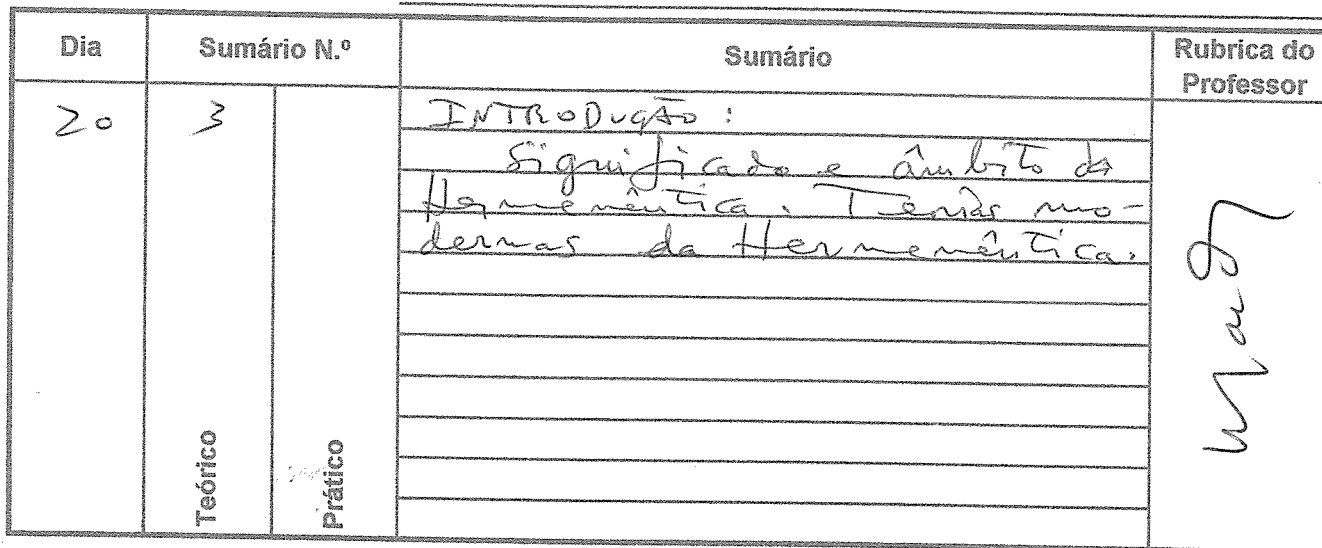 Dia Sumário N.º Sumário Rubrica do Professor
20 3 INTRODUÇÃO:
Significado e âmbito da
Hermenêutica. mo-
dernas da Hermenêutica.
Teórico Prático